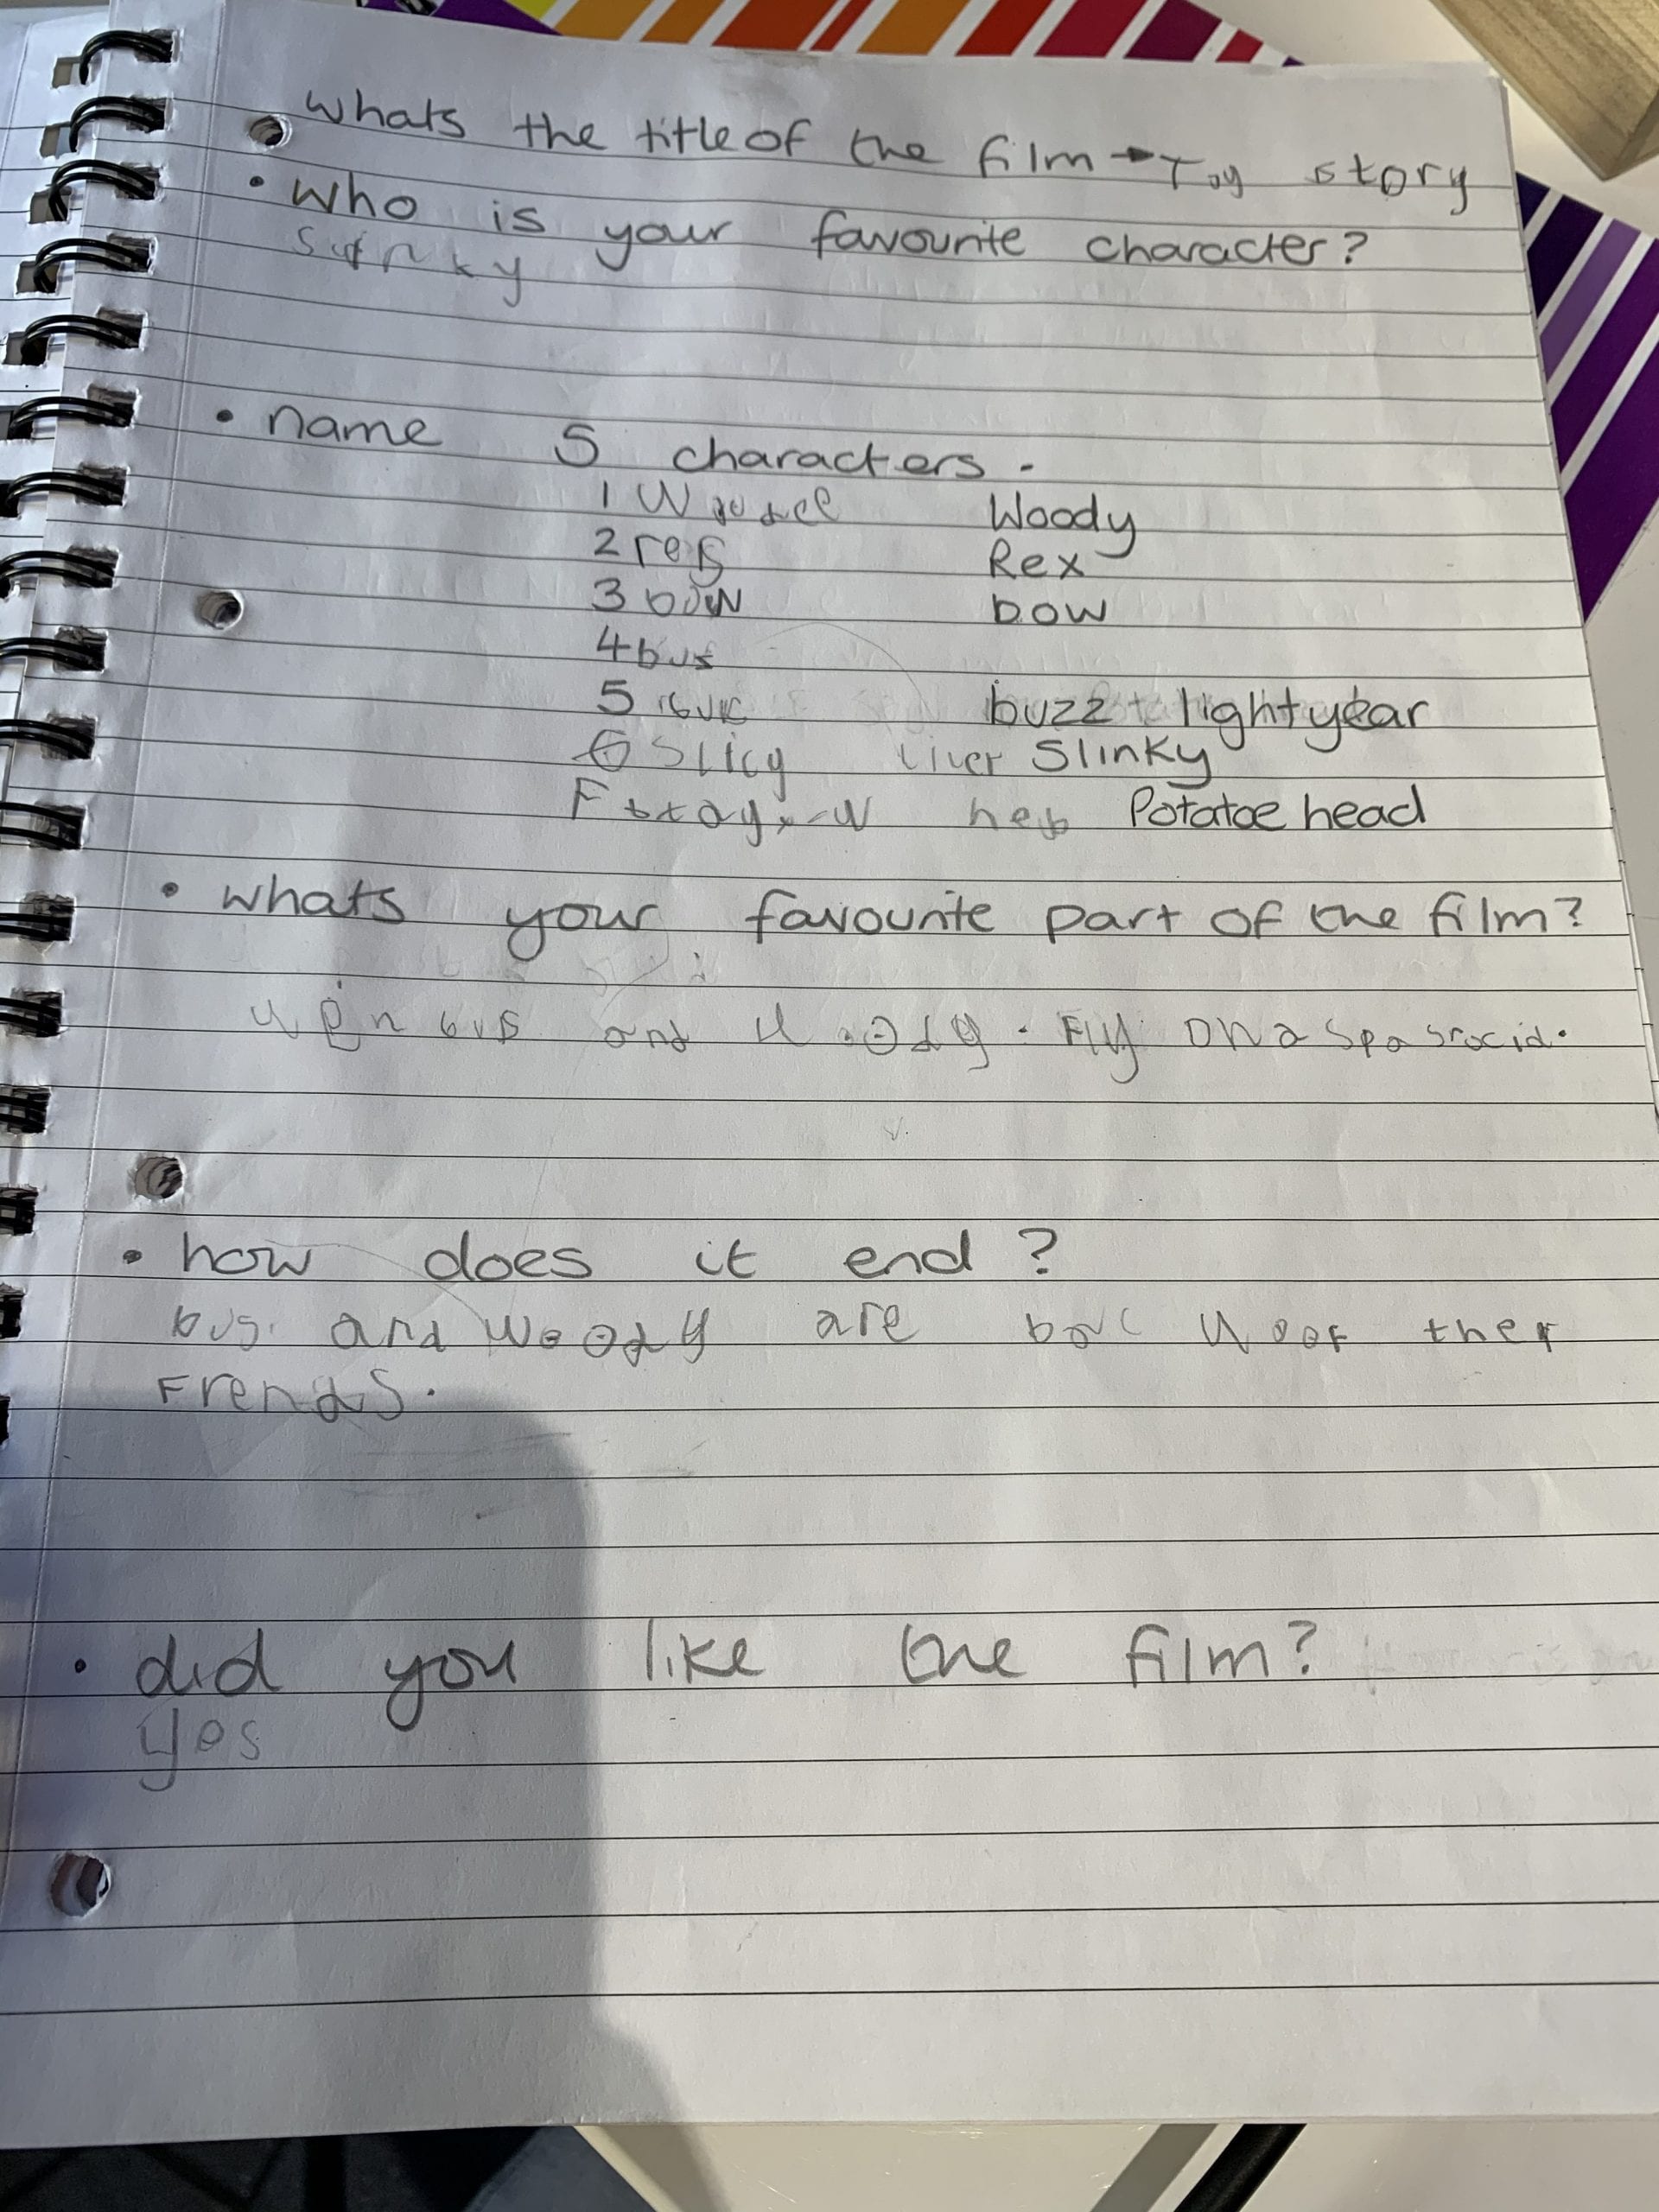 whats the title of the film → Toy story
• who is your favourite character?
• name 5 characters.
1 Woody
2 reg Rex
3 bow bow
4 bus
5 buzz lightyear
6 Slicy Slinky
Potatoe head
• whats your favourite part of the film?
wen bus and Woody. Fly on a spa srocid.
• how does it end?
bus. and Woody are ther
Frends.
• did you like the film?
yes